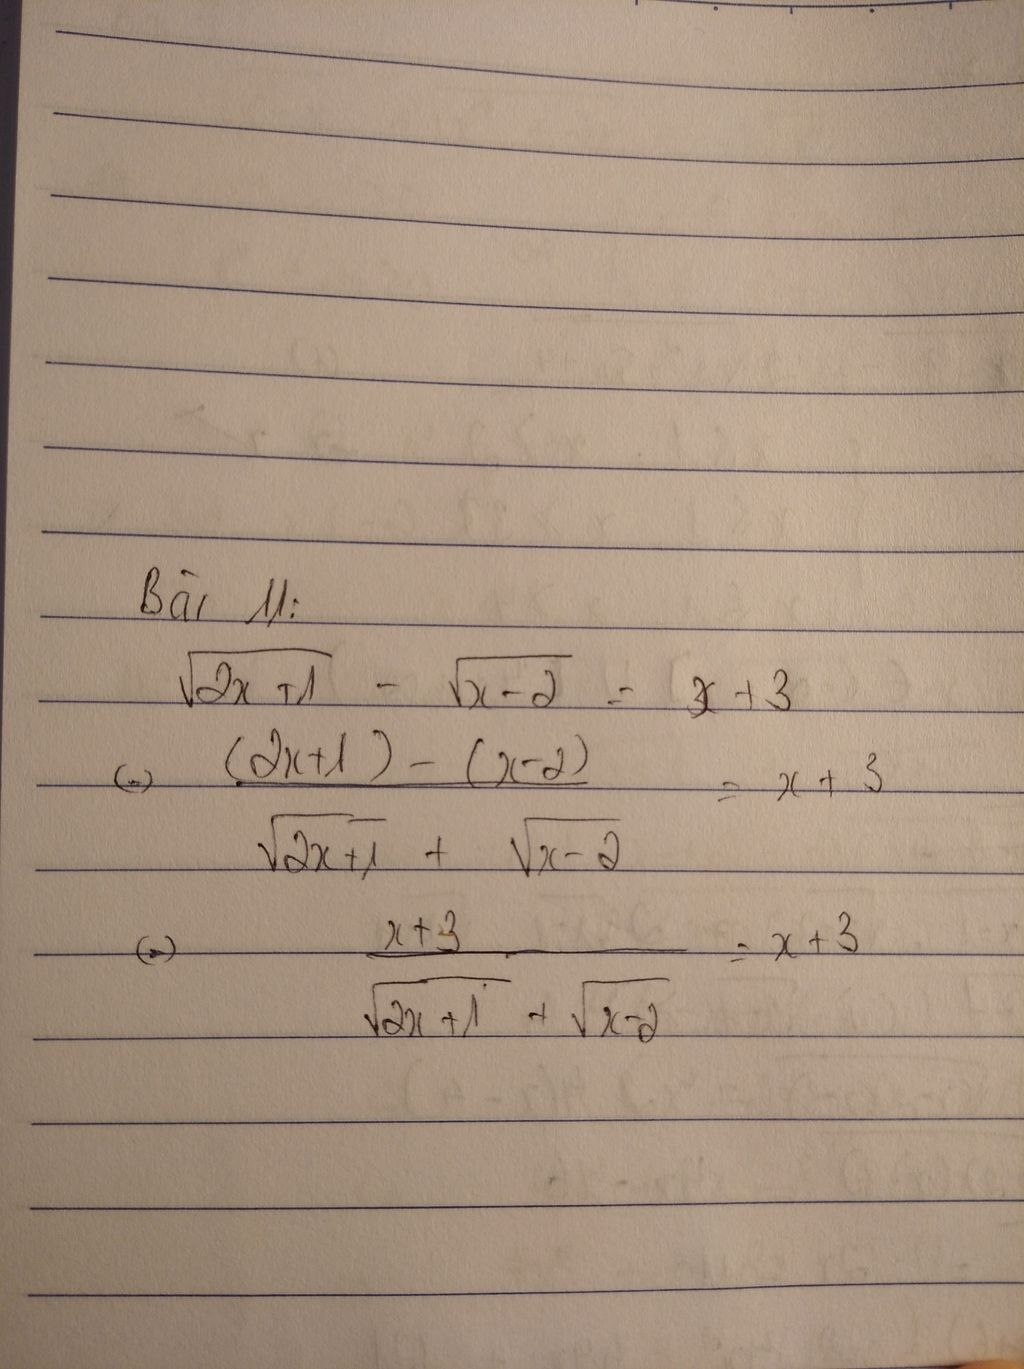 Bài 11:
√(2x+1) - √(x-2) = x+3
(=) ((2x+1) - (x-2)) / (√(2x+1) + √(x-2)) = x+3
(=) (x+3) / (√(2x+1) + √(x-2)) = x+3